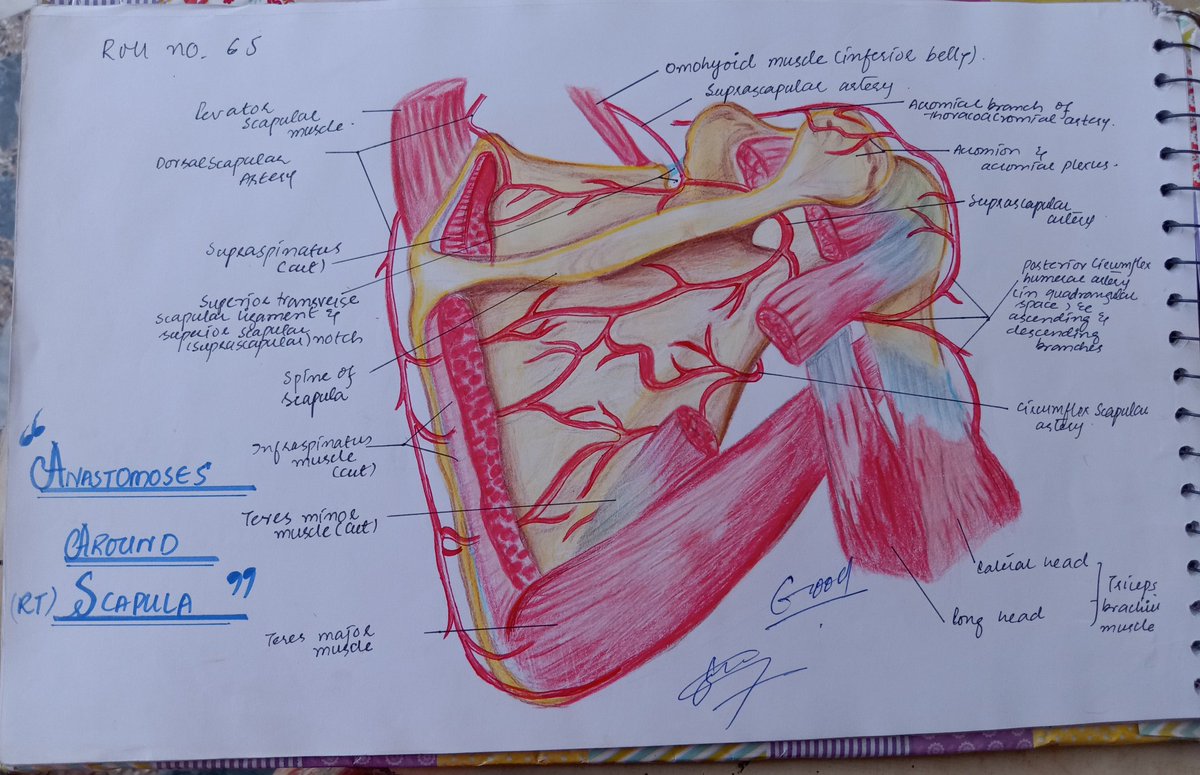 Roll no. 65
Levator
scapular
muscle.
Dorsalscapular
Artery
Supraspinatus
(cut)
Superior transverse
scapular ligament &
superior scapular
(suprascapular) notch
Spine of
scapula
Infraspinatus
muscle
(cut)
Teres minor
muscle (cut)
Teres major
muscle
"
Anastomoses
Around
(RT) Scapula "
Omohyoid muscle (inferior belly).
Suprascapular artery
Acromial branch of
thoracoacromial artery.
Acromion &
acromial plexus.
Suprascapular
artery
Posterior circumflex
humeral artery
(in quadrangular
space) &
ascending &
descending
branches
Circumflex scapular
artery.
Lateral head
Long head
Triceps
brachii
muscle
Good